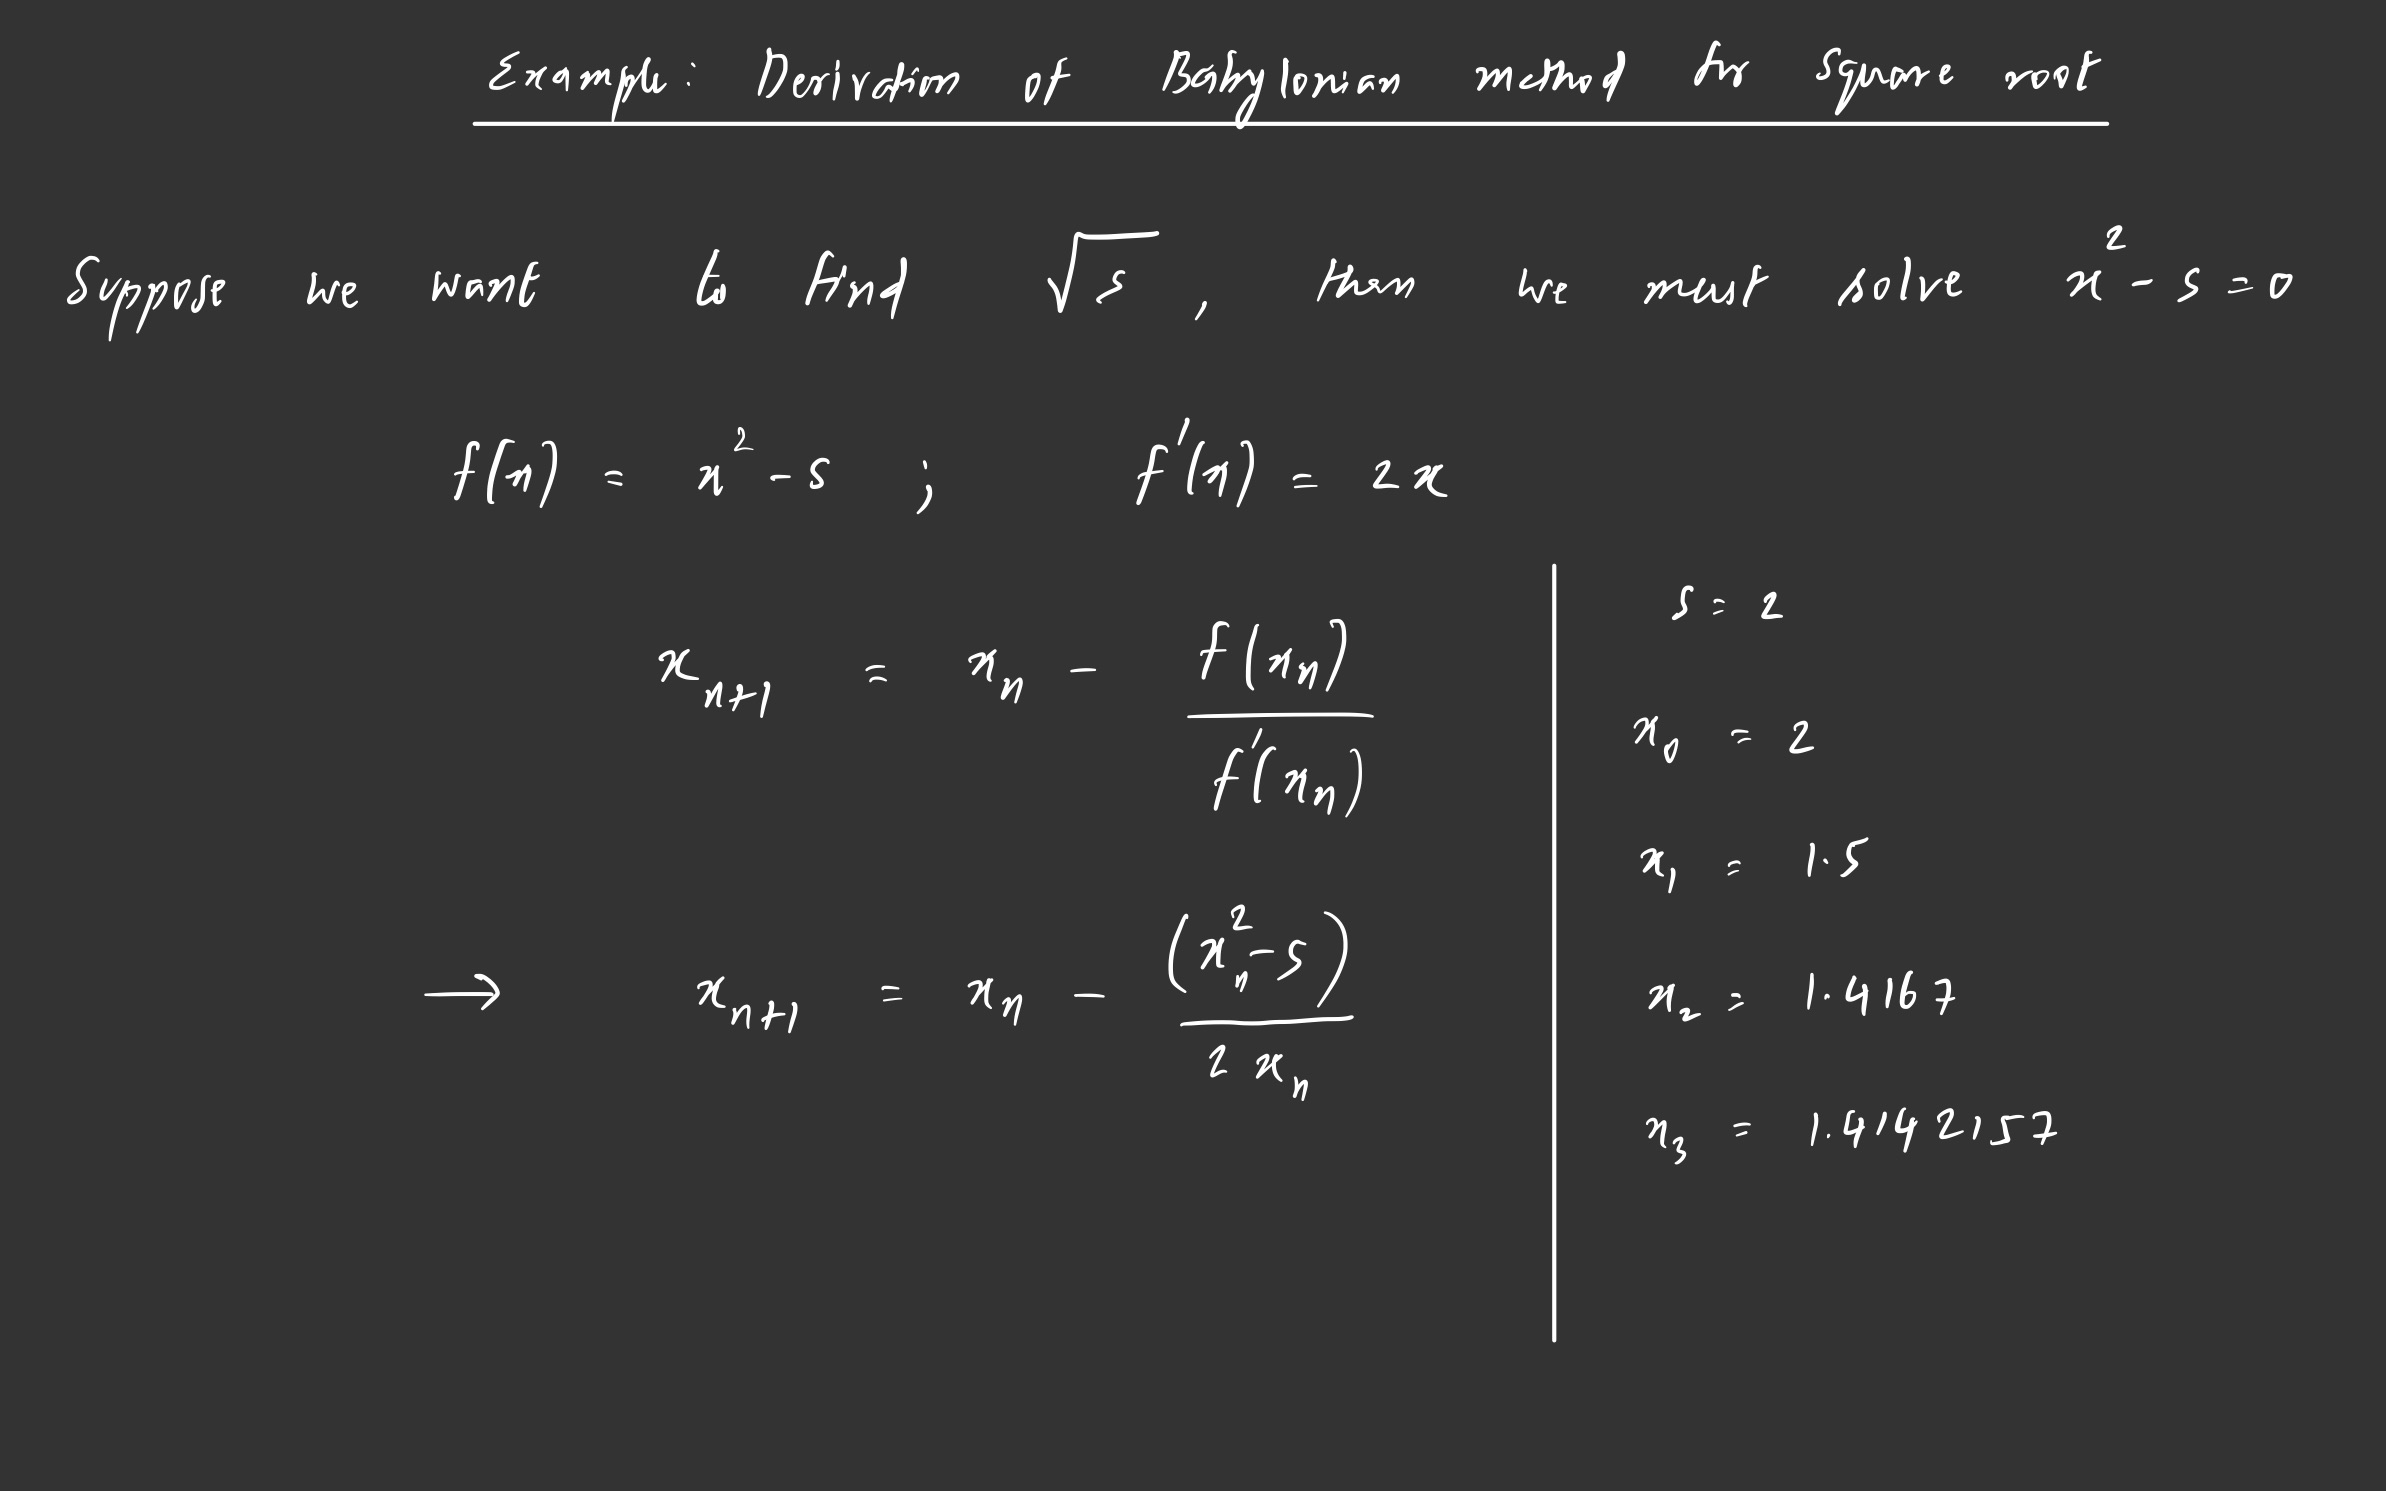 Example: Derivation of Babylonian method for Square root
Suppose we want to find √s, then we must solve x² - s = 0
f(x) = x² - s ; f'(x) = 2x
x_{n+1} = x_n - f(x_n) / f'(x_n)
→ x_{n+1} = x_n - (x_n² - s) / 2x_n
s = 2
x_0 = 2
x_1 = 1.5
x_2 = 1.4167
x_3 = 1.4142157